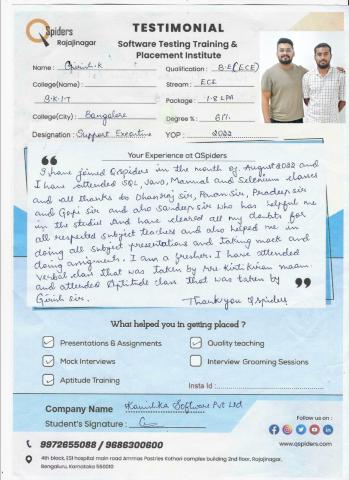 QSpiders
Rajajinagar
TESTIMONIAL
Software Testing Training &
Placement Institute
Name : Girish.K
Qualification : B.E(ECE)
College(Name) :
Stream : ECE
B.K.I.T
Package : 1.8 LPA
College(City) : Bangalore
Degree % : 61%
Designation : Support Executive
YOP : 2022
Your Experience at QSpiders
I have joined QSpiders in the month of August 2022 and
I have attended SQL Java, Manual and Selenium classes
and all thanks to Dhanraj sir, Pavan sir, Pradeep sir
and Gopi sir and also Sandeep sir who has helpful me
in the studies and have cleared all my doubts for
all respected subject teachers and also helped me in
doing all subject presentations and taking mock and
doing assignments. I am a fresher. I have attended
verbal class that was taken by Mrs Kirti Kiran maam
and attended Aptitude class that was taken by
Girish sir.
Thank you Qspiders
What helped you in getting placed ?
Presentations & Assignments
Quality teaching
Mock Interviews
Interview Grooming Sessions
Aptitude Training
Insta Id :
Company Name Software Pvt Ltd
Student's Signature :
Follow us on :
9972655088 / 9686300600
www.qspiders.com
4th block, ESI hospital main road Ammas Pastries Kothari complex building 2nd floor, Rajajinagar,
Bengaluru, Karnataka 560010